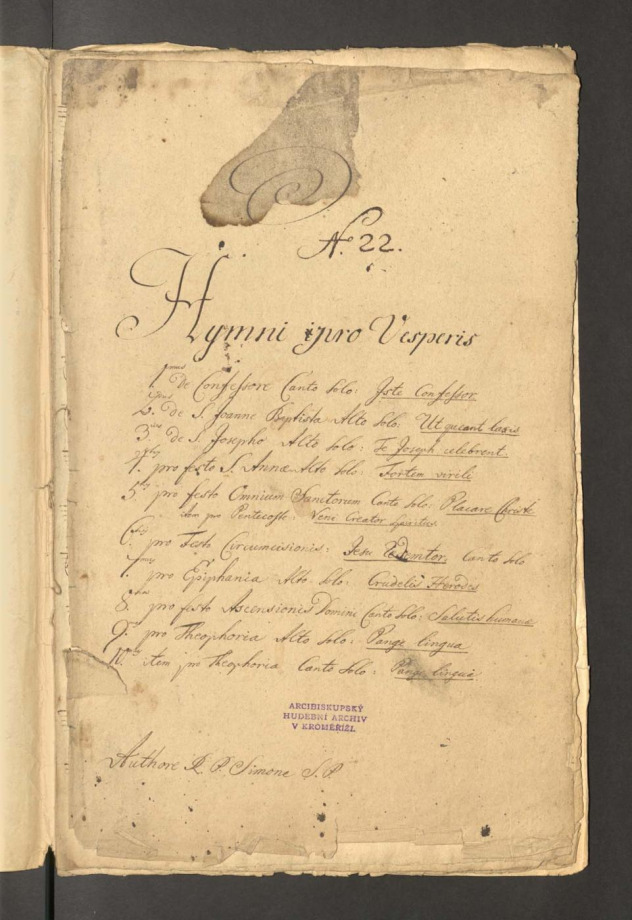 No 22.
Hymni pro Vesperis
1mus De Confessore Canto Solo: Iste Confessor
2dus de S. Joanne Baptista Alto Solo: Ut queant laxis
3tius de S. Josepho Alto Solo: Te Joseph celebrent
4tus pro festo S. Annæ Alto Solo: Fortem virili
5tus pro festo Omnium Sanctorum Canto Solo: Placare Christe
item pro Pentecoste: Veni Creator Spiritus
6tus pro Festo Circumcisionis: Jesu Redemtor, Canto Solo
7mus pro Epiphania Alto Solo: Crudelis Herodes
8vus pro festo Ascensionis Domini Canto Solo: Salutis humanæ
9nus pro Theophoria Alto Solo: Pange lingua
10mus item pro Theophoria Canto Solo: Pange lingua
ARCIBISKUPSKÝ
HUDEBNÍ ARCHIV
V KROMĚŘÍŽI.
Authore R. P. Simone S. P.